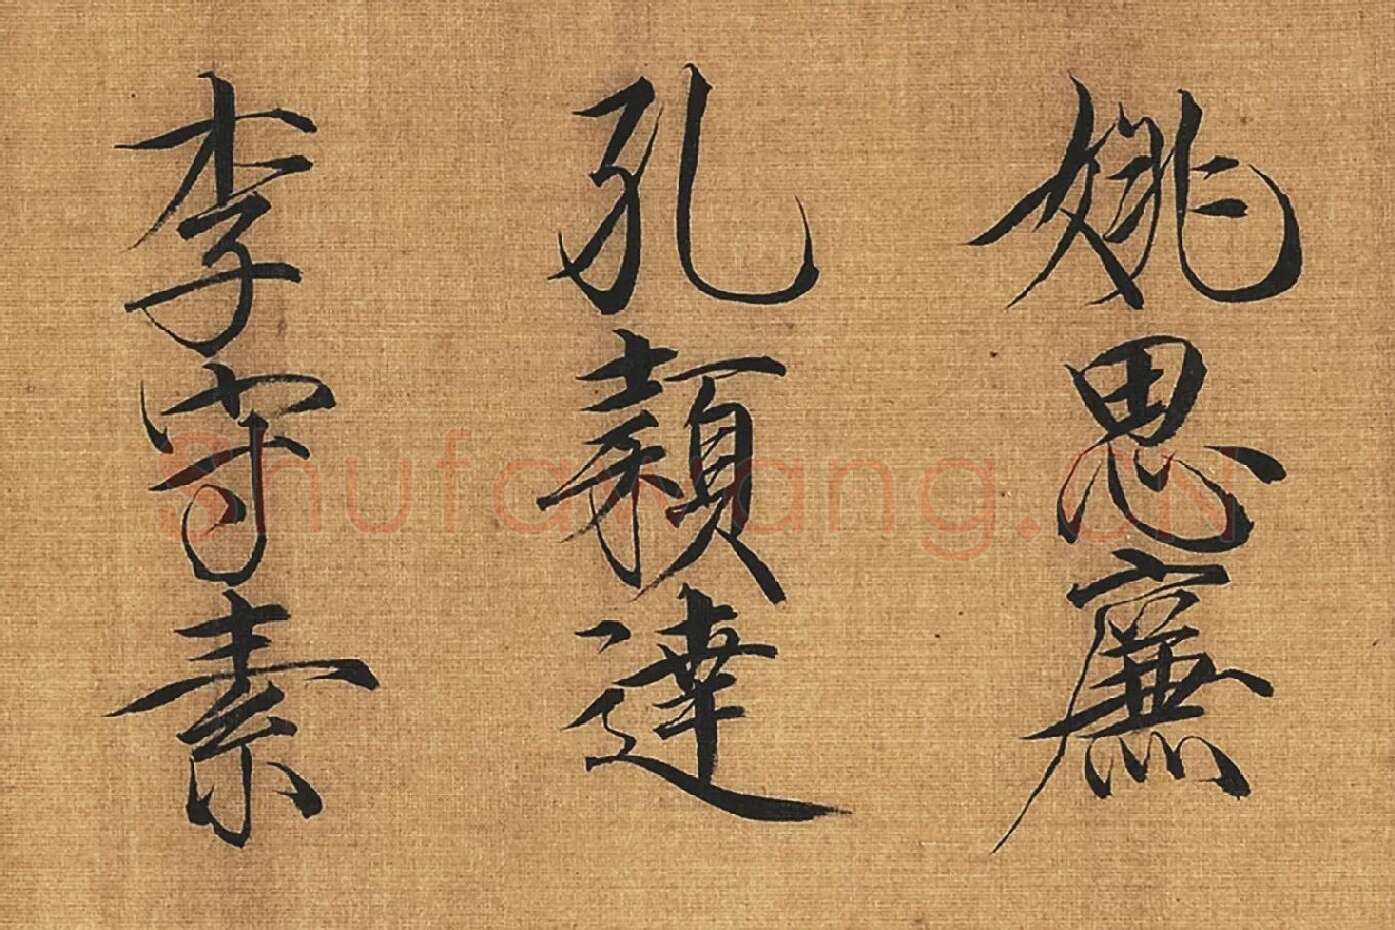 姚思廉
孔穎達
李守素
Shufawang.cn